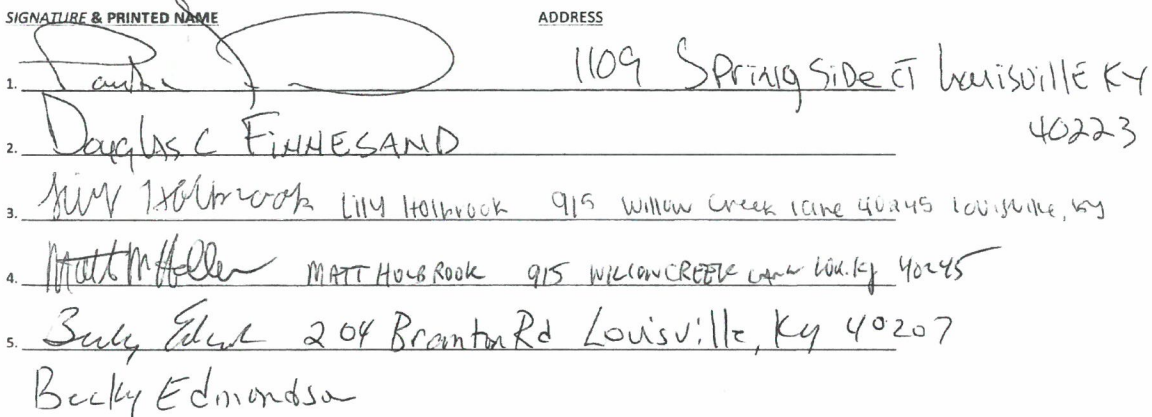 SIGNATURE & PRINTED NAME ADDRESS
1. 1109 Springside CT Louisville KY
40223
2. Douglas C FINNESAND
3. Lilly Holbrook Lilly Holbrook 915 Willow Creek Lane 40245 Louisville, Ky
4. Matt MATT HOLBROOK 915 WILLOW CREEK LANE LOU. Ky 40245
5. Becky 204 Branton Rd Louisville, Ky 40207
Becky Edmondson